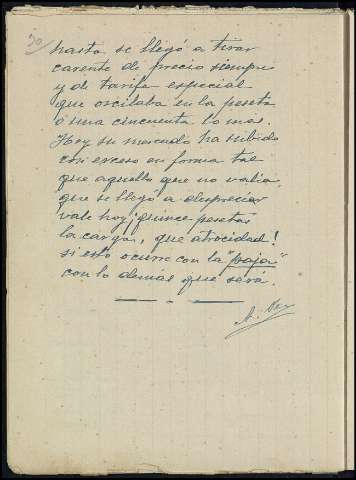 hasta se llegó a tirar
carente de precio siempre
y de tarifa especial
que oscilaba en la peseta
o una cincuenta lo más.
Hoy su mercado ha subido
con exceso en forma tal
que aquello que no valía
que se llegó a despreciar
vale hoy ¡quince pesetas
la carga, que atrocidad!
si esto ocurre con la "paja"
con lo demás que será.
A.